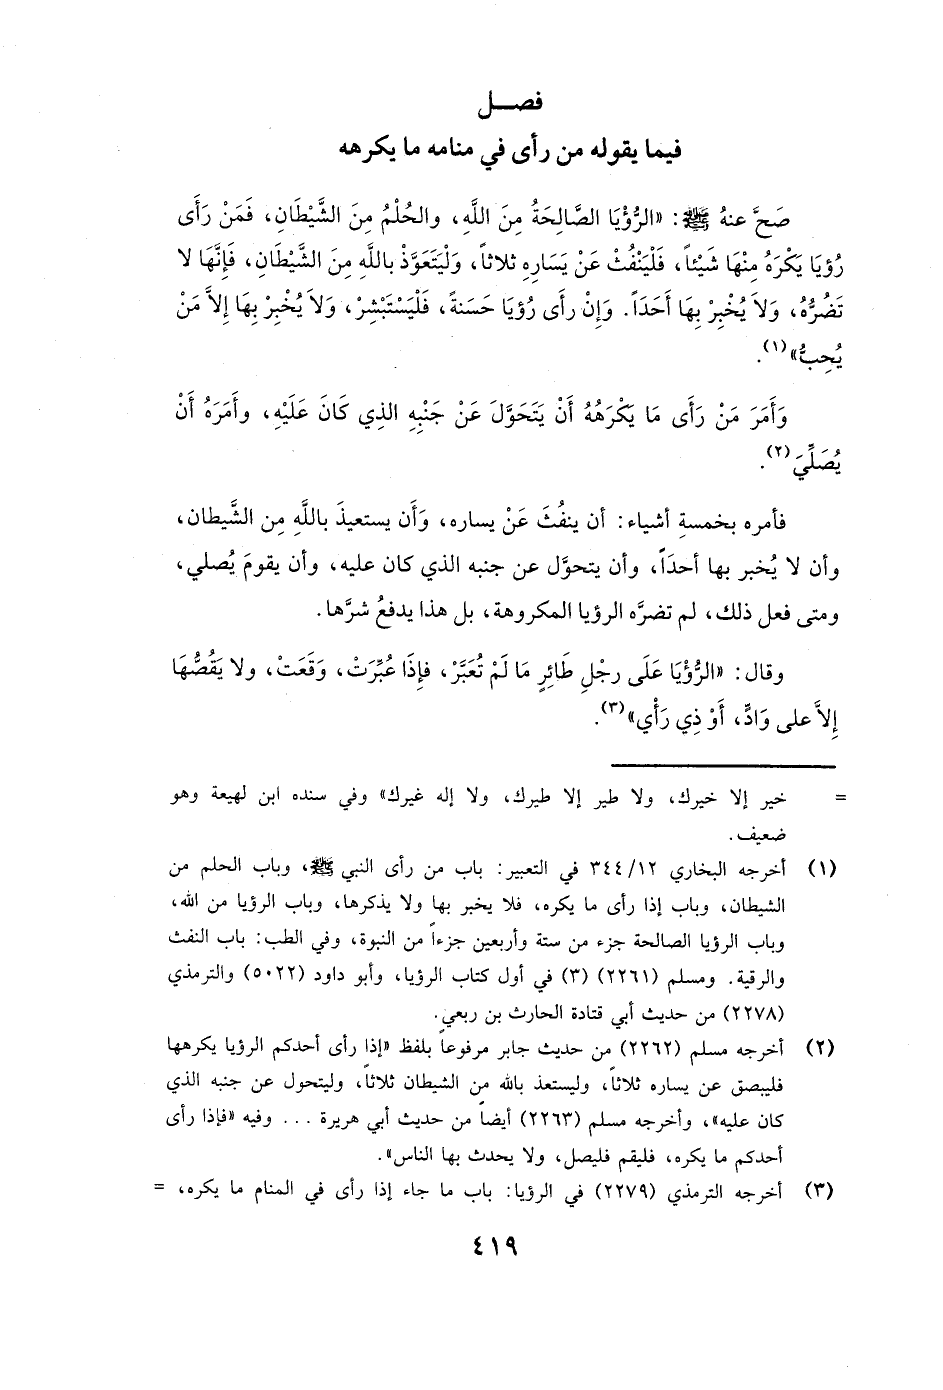 فصـــل
فيما يقوله من رأى في منامه ما يكرهه
صَحَّ عنهُ ﷺ: «الرُّؤْيَا الصَّالِحَةُ مِنَ اللَّهِ، والحُلْمُ مِنَ الشَّيْطَانِ، فَمَنْ رَأَى
رُؤيَا يَكْرَهُ مِنْهَا شَيْئاً، فَلْيَنْفُثْ عَنْ يَسَارِهِ ثَلاثاً، وَلْيَتَعَوَّذْ باللَّهِ مِنَ الشَّيْطَانِ، فَإِنَّهَا لا
تَضُرُّهُ، وَلاَ يُخْبِرْ بِهَا أَحَدَاً. وَإِنْ رأى رُؤيَا حَسَنةً، فَلْيَسْتَبْشِرْ، ولاَ يُخْبِرْ بِهَا إِلاَّ مَنْ
يُحِبُّ»(١).
وَأَمَرَ مَنْ رَأَى مَا يَكْرَهُهُ أَنْ يَتَحَوَّلَ عَنْ جَنْبِهِ الذِي كَانَ عَلَيْهِ، وأَمَرَهُ أَنْ
يُصَلِّيَ(٢).
فأمره بخمسةِ أشياء: أن ينفُثَ عَنْ يساره، وَأَن يستعيذَ باللَّهِ مِن الشَّيطان،
وأن لا يُخبر بها أحدَاً، وأن يتحوَّل عن جنبه الذي كان عليه، وأن يقومَ يُصلي،
ومتى فعل ذلك، لم تضرَّه الرؤيا المكروهة، بل هذا يدفعُ شرَّها.
وقال: «الرُّؤْيَا عَلَى رِجْلِ طَائِرٍ مَا لَمْ تُعَبَّرْ، فإِذَا عُبِّرَتْ، وَقَعَتْ، ولا يَقُصُّهَا
إِلاَّ على وَادٍّ، أَوْ ذِي رَأْيٍ»(٣).
= خير إلا خيرك، ولا طير إلا طيرك، ولا إله غيرك» وفي سنده ابن لهيعة وهو
ضعيف.
(١) أخرجه البخاري ٣٤٤/١٢ في التعبير: باب من رأى النبي ﷺ، وباب الحلم من
الشيطان، وباب إذا رأى ما يكره، فلا يخبر بها ولا يذكرها، وباب الرؤيا من الله،
وباب الرؤيا الصالحة جزء من ستة وأربعين جزءاً من النبوة، وفي الطب: باب النفث
والرقية. ومسلم (٢٢٦١) (٣) في أول كتاب الرؤيا، وأبو داود (٥٠٢٢) والترمذي
(٢٢٧٨) من حديث أبي قتادة الحارث بن ربعي.
(٢) أخرجه مسلم (٢٢٦٢) من حديث جابر مرفوعاً بلفظ «إذا رأى أحدكم الرؤيا يكرهها
فليبصق عن يساره ثلاثاً، وليستعذ بالله من الشيطان ثلاثاً، وليتحول عن جنبه الذي
كان عليه»، وأخرجه مسلم (٢٢٦٣) أيضاً من حديث أبي هريرة ... وفيه «فإذا رأى
أحدكم ما يكره، فليقم فليصل، ولا يحدث بها الناس».
(٣) أخرجه الترمذي (٢٢٧٩) في الرؤيا: باب ما جاء إذا رأى في المنام ما يكره، =
٤١٩